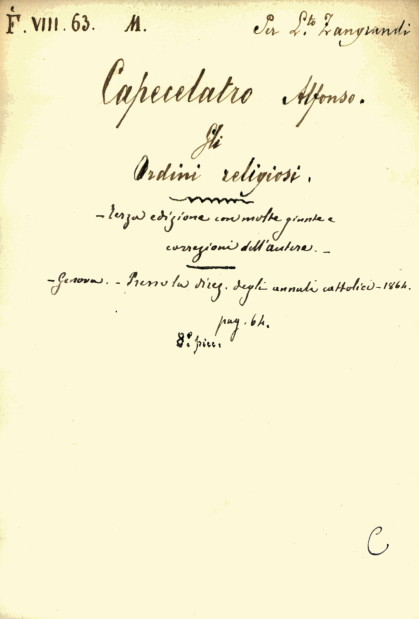 F. VIII. 63. M. Per L.to Zangrandi
Capecelatro Alfonso.
Gli
Ordini religiosi.
- Terza edizione con molte giunte e
correzioni dell'autore. -
- Genova. - Presso la direz. degli annali cattolici - 1864.
pag. 64.
8.° picc.
C